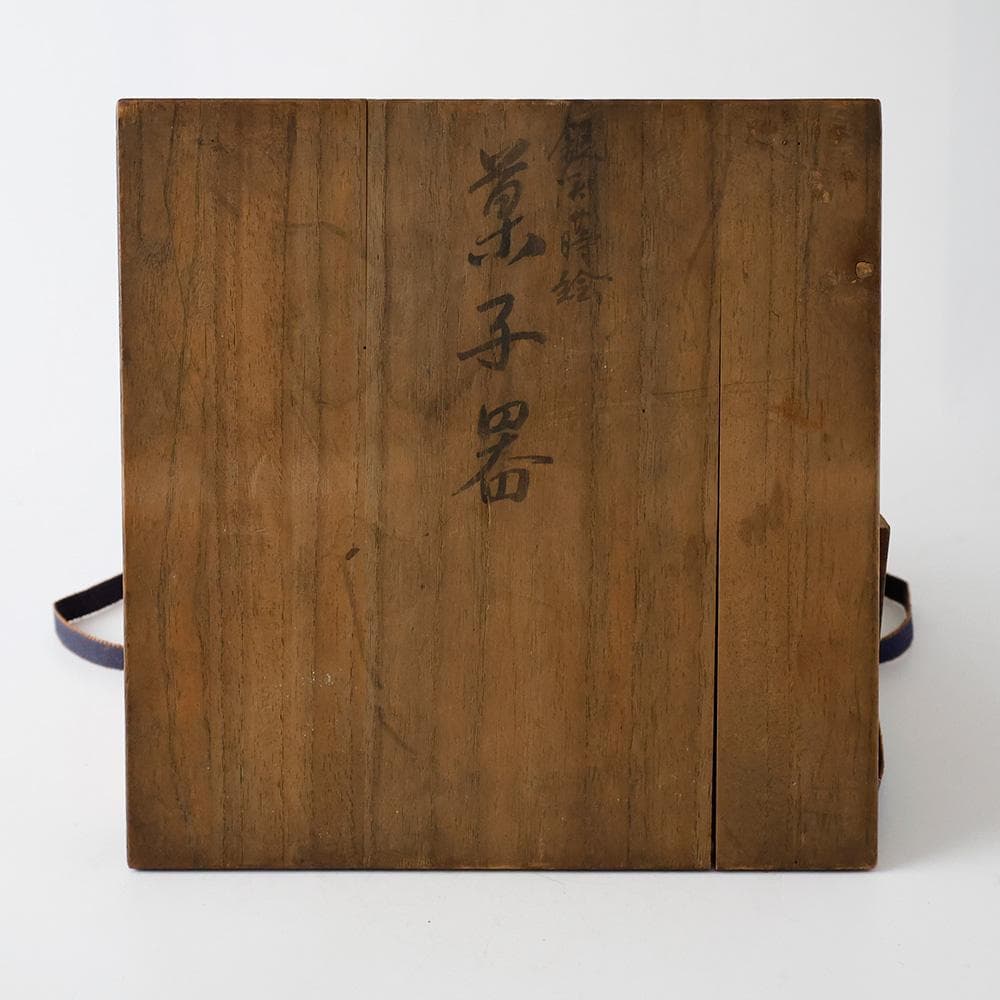 蒔絵
菓子器